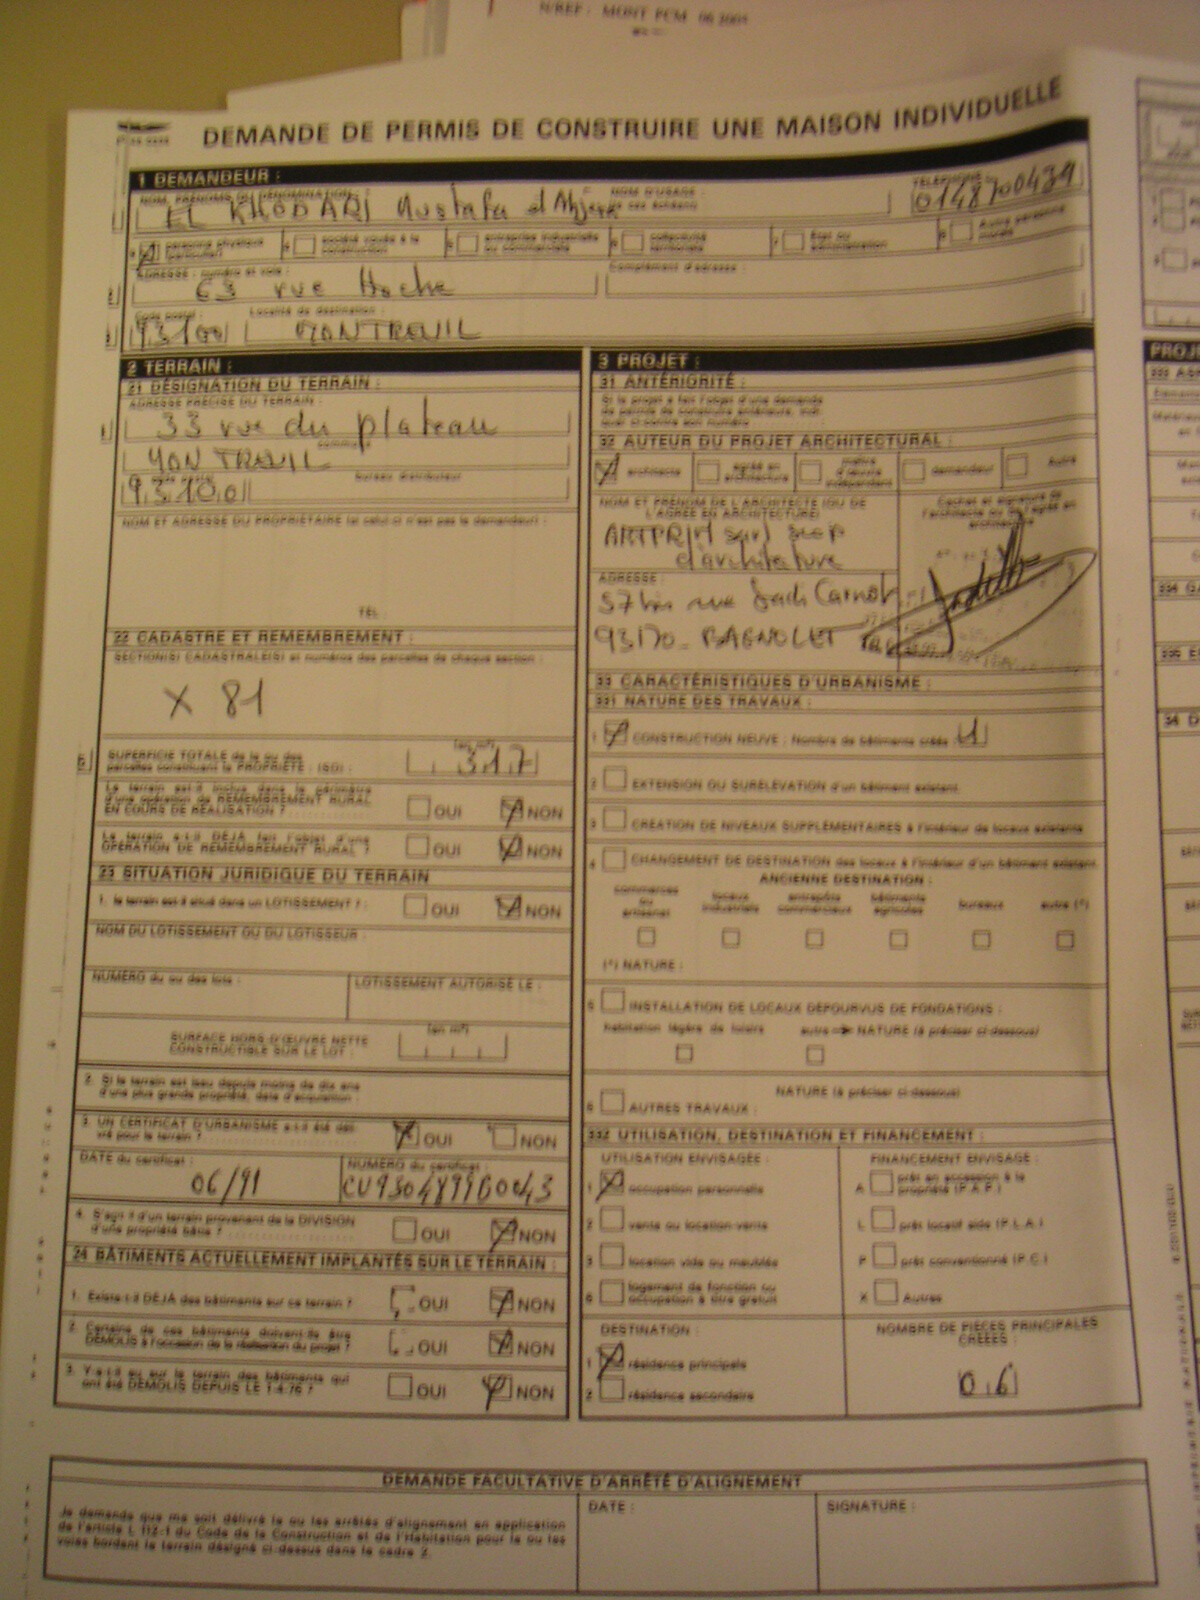 N/REF : MONT PCM 06 2001
DEMANDE DE PERMIS DE CONSTRUIRE UNE MAISON INDIVIDUELLE
1 DEMANDEUR :
NOM, PRÉNOMS OU DÉNOMINATION : NOM D'USAGE : TÉLÉPHONE
EL KHODARI Mustafa 0148700439
personne physique particulier société vouée à la construction entreprise industrielle ou commerciale collectivité territoriale État ou administration Autre personne morale
ADRESSE : numéro et voie : Complément d'adresse :
63 rue Hoche
Code postal : Localité de destination :
93100 MONTREUIL
2 TERRAIN :
21 DÉSIGNATION DU TERRAIN :
ADRESSE PRÉCISE DU TERRAIN :
33 rue du plateau
commune
MONTREUIL
bureau distributeur
93100
NOM ET ADRESSE DU PROPRIÉTAIRE (si celui-ci n'est pas le demandeur) :
TEL :
22 CADASTRE ET REMEMBREMENT :
SECTION(S) CADASTRALE(S) et numéros des parcelles de chaque section :
X 81
SUPERFICIE TOTALE de la ou des (en m²)
parcelles constituant la PROPRIÉTÉ : 317
Le terrain est-il inclus dans le périmètre
d'une opération de REMEMBREMENT RURAL
EN COURS DE RÉALISATION ? OUI NON
Le terrain a-t-il DÉJÀ fait l'objet d'une
OPÉRATION DE REMEMBREMENT RURAL ? OUI NON
23 SITUATION JURIDIQUE DU TERRAIN
1. le terrain est-il situé dans un LOTISSEMENT ? : OUI NON
NOM DU LOTISSEMENT OU DU LOTISSEUR :
NUMÉRO du ou des lots : LOTISSEMENT AUTORISÉ LE :
SURFACE HORS D'ŒUVRE NETTE (en m²)
CONSTRUCTIBLE SUR LE LOT :
2. Si le terrain est issu depuis moins de dix ans
d'une plus grande propriété, date d'acquisition :
3. UN CERTIFICAT D'URBANISME a-t-il été déli-
vré pour le terrain ? OUI NON
DATE du certificat : NUMÉRO du certificat :
06/91 CU9304899B0043
4. S'agit-il d'un terrain provenant de la DIVISION
d'une propriété bâtie ? OUI NON
24 BÂTIMENTS ACTUELLEMENT IMPLANTÉS SUR LE TERRAIN :
1. Existe-t-il DÉJÀ des bâtiments sur ce terrain ? OUI NON
2. Certains de ces bâtiments doivent-ils être
DÉMOLIS à l'occasion de la réalisation du projet ? OUI NON
3. Y a-t-il eu sur le terrain des bâtiments qui
ont été DÉMOLIS DEPUIS LE 1-4-76 ? OUI NON
3 PROJET :
31 ANTÉRIORITÉ :
Si le projet a fait l'objet d'une demande
de permis de construire antérieure, voir
quel ci-contre son numéro
32 AUTEUR DU PROJET ARCHITECTURAL :
architecte agréé en architecture maître d'œuvre indépendant demandeur Autre
NOM ET PRÉNOM DE L'ARCHITECTE (OU DE
L'AGRÉÉ EN ARCHITECTURE)
Cachet et signature de
l'architecte ou de l'agréé en
architecture
ARTPRIM sarl
d'architecture
ADRESSE :
57 bis rue Sadi Carnot
93170 - BAGNOLET
33 CARACTÉRISTIQUES D'URBANISME :
331 NATURE DES TRAVAUX :
1 CONSTRUCTION NEUVE : Nombre de bâtiments créés 1
2 EXTENSION OU SURÉLÉVATION d'un bâtiment existant.
3 CRÉATION DE NIVEAUX SUPPLÉMENTAIRES à l'intérieur de locaux existants
4 CHANGEMENT DE DESTINATION des locaux à l'intérieur d'un bâtiment existant.
ANCIENNE DESTINATION :
commerces ou artisanat locaux industriels entrepôts commerciaux bâtiments agricoles bureaux autre (*)
(*) NATURE :
5 INSTALLATION DE LOCAUX DÉPOURVUS DE FONDATIONS :
habitation légère de loisirs autre NATURE (à préciser ci-dessous)
NATURE (à préciser ci-dessous)
6 AUTRES TRAVAUX :
332 UTILISATION, DESTINATION ET FINANCEMENT :
UTILISATION ENVISAGÉE : FINANCEMENT ENVISAGÉ :
1 occupation personnelle A prêt en accession à la propriété (P.A.P.)
2 vente ou location-vente L prêt locatif aidé (P.L.A.)
3 location vide ou meublée P prêt conventionné (P.C.)
6 logement de fonction ou occupation à titre gratuit X Autres
DESTINATION : NOMBRE DE PIÈCES PRINCIPALES
CRÉÉES :
1 résidence principale 06
2 résidence secondaire
DEMANDE FACULTATIVE D'ARRÊTÉ D'ALIGNEMENT
Je demande que me soit délivré le ou les arrêtés d'alignement en application
de l'article L 112-1 du Code de la Construction et de l'Habitation pour la ou les
voies bordant le terrain désigné ci-dessus dans le cadre 2.
DATE : SIGNATURE :